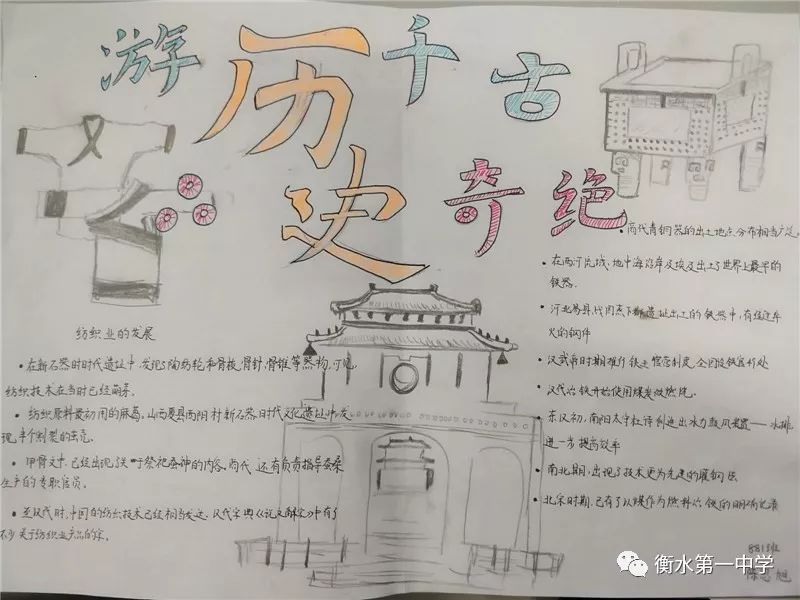 游历千古
史奇绝
纺织业的发展
• 在新石器时时代遗址中,发现了陶纺轮和骨梭,骨针,骨锥等器物,可见,
纺织技术在当时已经萌芽。
• 纺织原料最初用的麻葛。山西夏县西阴村新石器时代文化遗址中,发
现半个割裂的茧壳。
• 甲骨文中,已经出现关于祭祀蚕神的内容。商代还有负责指导蚕桑
生产的专职官员。
• 至汉代时,中国的纺织技术已经相当发达,汉代字典《说文解字》中有了
不少关于纺织业产品的字。
• 商代青铜器的出土地点分布相当广泛
• 在两河流域,地中海沿岸及埃及出土了世界上最早的
铁器。
• 河北易县代闭杰下都遗址出土的铁器中,有经过车
火的钢件
• 汉武帝时期推行铁业官营制度,全国设铁官炉处
• 汉代冶铁开始使用煤炭做燃烧。
• 东汉初,南阳太守杜诗创造出水力鼓风装置——水排
进一步提高效率
• 南北朝期,出现了技术更为先进的灌钢法
• 北宋时期,已有了以煤作为燃料冶铁的明确记录
881班
陈志旭
衡水第一中学